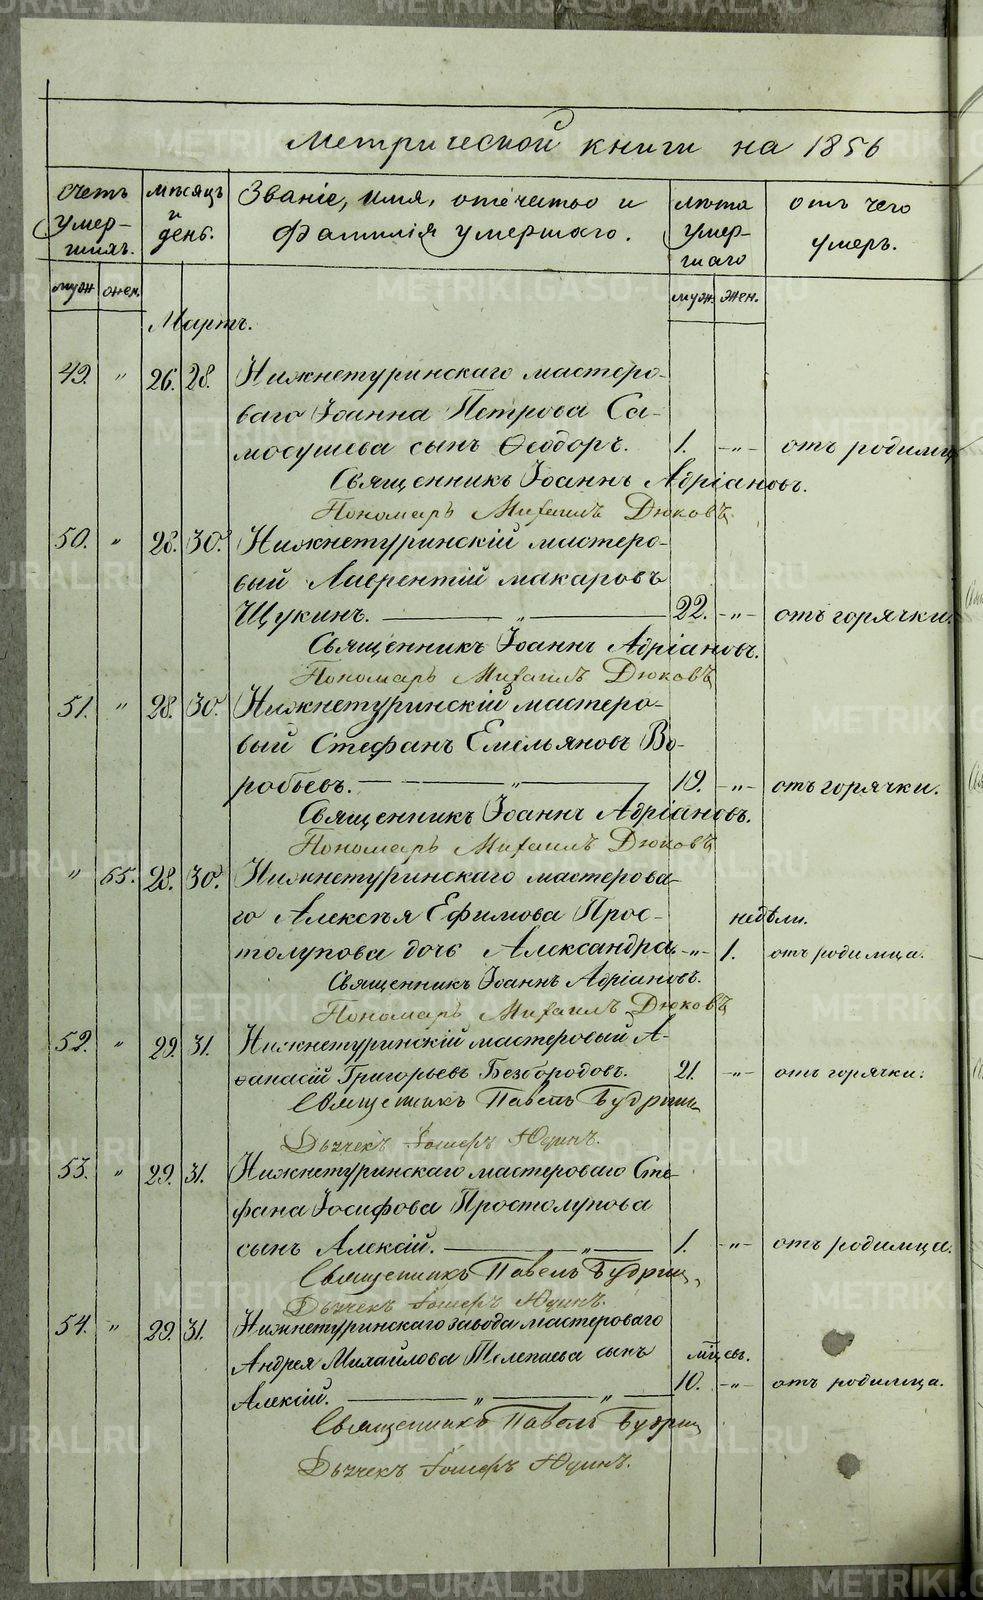 Метрической книги на 1856
Счетъ умершихъ. Мѣсяцъ и день. Званіе, имя, отечество и фамилія умершаго. Лѣта умершаго отъ чего умеръ.
муж. жен. муж. жен.
Мартъ.
49. " 26. 28. Нижнетуринскаго мастеро-
ваго Іоанна Петрова Са-
мосушева сынъ Ѳеодоръ. 1. -"- отъ родимц
Священникъ Іоаннъ Адріановъ.
Пономарь Михаилъ Дюковъ.
50. " 28. 30. Нижнетуринскій мастеро-
вый Лаврентій Макаровъ
Щукинъ. — " — 22. -"- отъ горячки.
Священникъ Іоаннъ Адріановъ.
Пономарь Михаилъ Дюковъ
51. " 28. 30. Нижнетуринскій мастеро-
вый Стефанъ Емельяновъ Во-
робьевъ. — " — 19. -"- отъ горячки.
Священникъ Іоаннъ Адріановъ.
Пономарь Михаилъ Дюковъ
" 55. 28. 30. Нижнетуринскаго мастерова-
го Алексѣя Ефимова Прос- недѣли.
толупова дочь Александра. -"- 1. отъ родимца.
Священникъ Іоаннъ Адріановъ.
Пономарь Михаилъ Дюковъ
52. " 29. 31. Нижнетуринскій мастеровый А-
ѳанасій Григорьевъ Безбородовъ. 21. -"- отъ горячки.
Священникъ Павелъ Будрин
Дьячекъ Юдинъ.
53. " 29. 31. Нижнетуринскаго мастероваго Сте-
фана Іосифова Простолупова
сынъ Алексій. — " — 1. -"- отъ родимца.
Священникъ Павелъ Будрин
Дьячекъ Юдинъ.
54. " 29. 31. Нижнетуринскаго завода мастероваго
Андрея Михайлова Телепаева сынъ мѣсяц.
Алексій. — " — " — 10. -"- отъ родимца.
Священникъ Павелъ Будрин
Дьячекъ Юдинъ.
METRIKI.GASO-URAL.RU